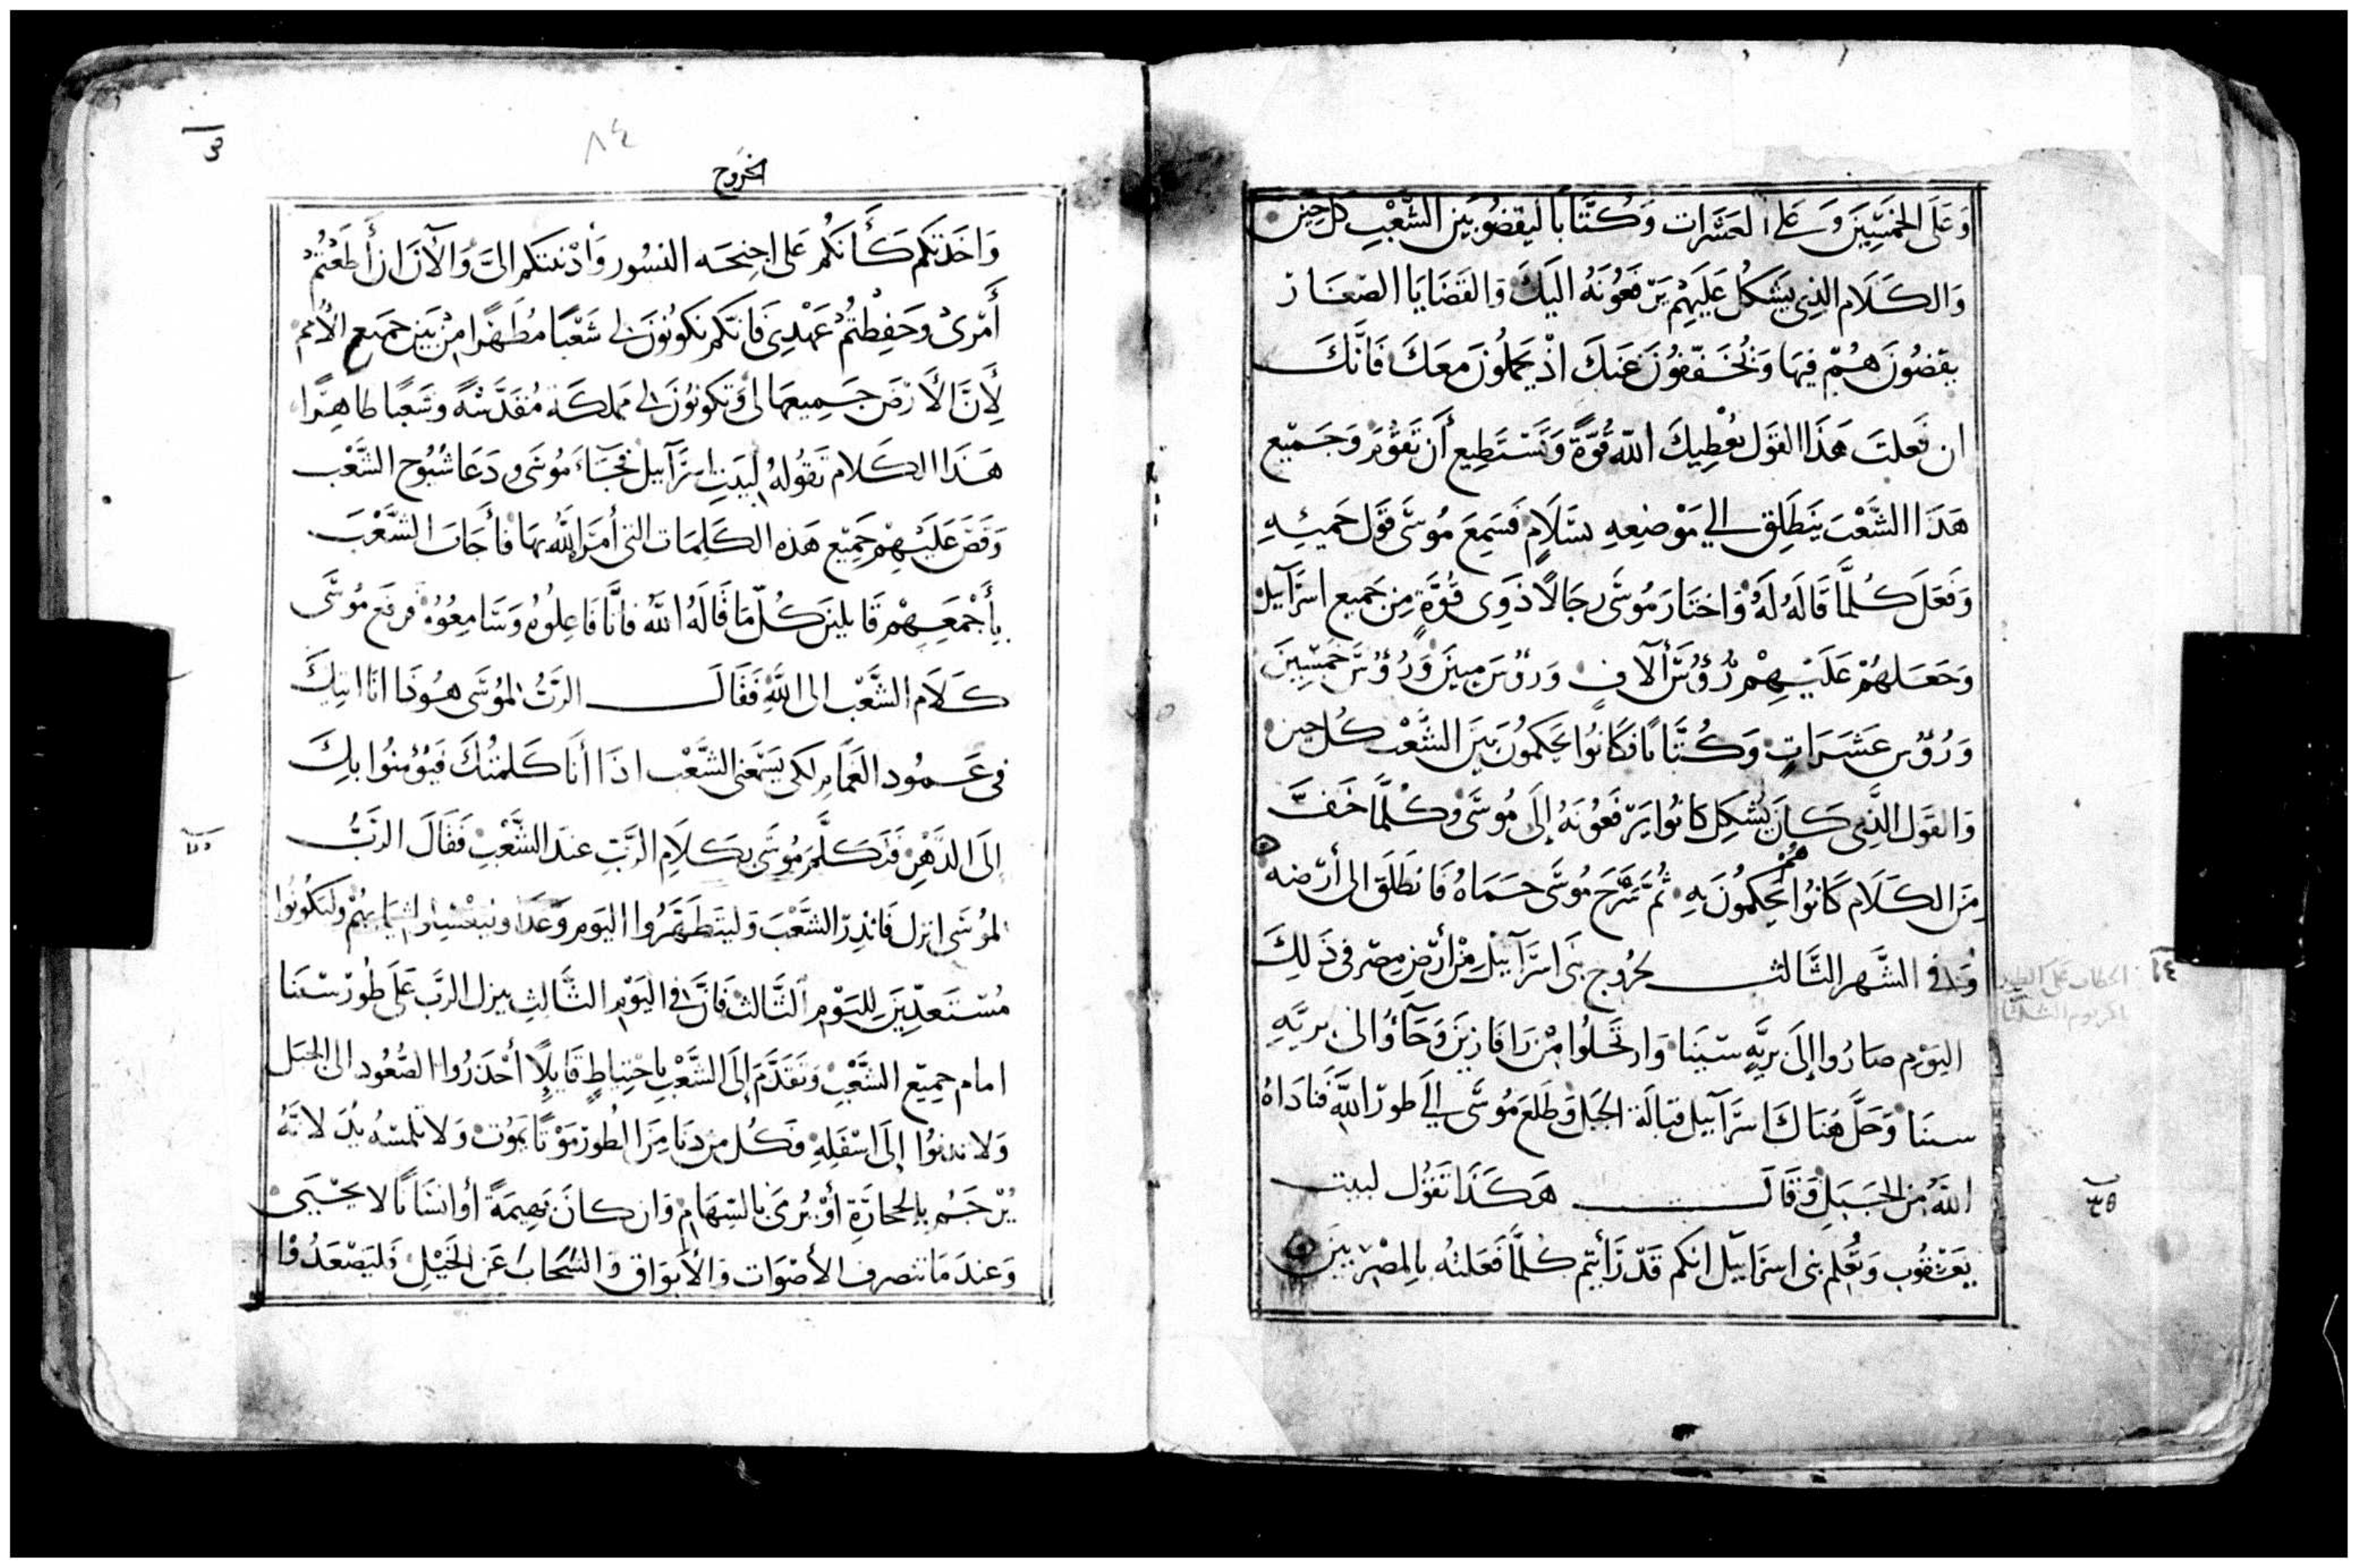 وَعَلَى الخمسِينَ وَعَلى العَشرات وَكُتَّابا ليقضُو بَين الشَّعْبِ كل حِين
وَالكَلَام الذِي يَشكل عَليَهِمْ يَرْفَعُونَهُ اليَكَ وَالقَضَايَا الصّغَارْ
يقضُونَ هُمّ فِيهَا وَيُخَففّوُنَ عَنكَ اذْ يَحملُونَ مَعَكَ فَانَّكَ
ان فَعلتَ هَذَا القَول يعْطِيكَ اللّه قُوَّةً وَتَسْتَطِيع أَن تَقوُمَ وَجَميْع
هَذَا الشَّعْبَ يَنطَلِق الي مَوْضعِهِ بسَلَامٍ فسَمِعَ مُوسَى قَول حَميْهِ
وَفعَلَ كُلمَّا قَالَهُ لَهُ وَاختَارَ مُوسَى رجَالًا ذَوِى قُوَّةٍ مِن جَميع اسرَآييل
وَجَعَلهُمْ عَلَيْهِمْ رُؤُسَ أَلآفٍ وَرؤسَ ميينَ وَرُؤُسَ خَمسِّينَ
وَرُؤُس عَشَرَاتٍ وَكُتَّابًا فكَانوُا يَحكمُونَ بَينَ الشَّعْب كُل حين
وَالقَول الَّذِى كَانَ يُشكِل كانُوا يَرْفَعُونَهُ إلَى مُوسَى وَكُلمَّا خَفَّ
مِنَ الكَلَام كَانوُا هُمْ يَحكِمُونَ بَهِ ثُمَّ سَرَّحَ مُوسَى حَمَاهُ فَانطَلَقَ الى أَرْضه
وَفى الشَّهر الثَّالث لخرُوج بَنى اسرَآييْل مِنْ أَرْضِ مصْر فى ذَلِكَ
اليَوْم صَارُوا إلَى بريّهِ سيَنَا وَارتَحَلُوا مِنْ رَافَازينَ وَجَآؤُا الى بريَّهِ
سينَا وَحَلَّ هُنَاكَ اسرَآييل قبَالَة الجبَل وَطَلعَ مُوسَّى الَي طورْ اللَّهِ فَنَادَاهُ
اللَّهُ مِن الجَبَلِ وَقَالَ هَكَذَا تَقوُل لبيت
يَعْقُوب وَتُعْلِم بنى اسرَاييّل انكم قَدْ رَأيتم كلمَّا فَعَلتُه بالمِصْريينَ
الخروج
٨٤
وَاخَذتكم كَأَنكُم عَلى اجنِحَه النسُور وَأَدْنَيتكم الىَّ وَالآنَ ان أَطَعْتُمْ
أَمْرىْ وَحَفِظتُمْ عَهْدِى فَانكم تكونُونَ لى شَعْبًا مُطَهرًا مِنْ بَين جميع الأُمم
لِأَنَّ الأَرْضَ جَميِعهَا لى وَتَكونُونَ لى مَملكَة مُقَدَّسَةً وَشَعبًا طَاهِرًا
هَذَا الكَلام تَقُولهُ لِبيَتِ اسرَآييل فجَآءَ مُوسَى وَدَعَا شيُوخ الشَّعْب
وَقَصَّ عَلَيْهِمْ جَمِيْع هَذه الكَلِمَات التى أَمرَ اللّهُ بهَا فأَجَابَ الشَّعْب
بأَجْمَعِهمْ قَايلينَ كُلّ مَا قَالَهُ اللَّهُ فانَّا فَاعِلُوهُ وَسَامِعُوهُ فرفَع مُوسَّى
كَلاَم الشَّعْب الى اللَّهِ فَقَالَ الرَّبُّ لموُسَى هوُذَا انَا اتيكَ
فى عَمُود الغَمَامِ لكى يَسمَعَنى الشَّعْب اذَا أَنَا كَلمتُكَ فَيُوْمِنُوا بكَ
إلَى الدَّهْرِ فَكَلَّمَ مُوسَى بكَلاَمِ الرَّبِّ عندَ الشَّعْبِ فَقَالَ الرَّبُّ
لموُسَى انزل فَانذِرْ الشَّعْبَ وَليَتَطَهَّرُوا اليَوم وَغَدًا وَليغسِلوا ثيَابهُمْ وَليَكُونُوا
مُسْتَعدِّينَ لِليَوْم الثَّالث فَانَّ فى اليَوْمِ الثَّالثِ ينزل الرَّب عَلَى طُورْ سْينَا
امام جميْع الشَّعْبِ وَتقَدَّمَ إلَى الشَّعْبِ باحْتيَاطٍ قَايلًا أحْذَرُوا الصُّعُود الى الجَبل
وَلا تدنوُا إلَى اسْفَلِهِ فَكُل من دَنَا مِنَ الطُورْ مَوْتًا يمَوُت وَلا تلمسُه يَدُ لانَّهُ
يُرْجَمُ بالحجَارَةِ أَوْ يُرمَى بالسّهَامِ وَان كانَ بَهيمَةً أَو انسَانًا لا يَحْيىَ
وَعندَ مَا تنصرف الأَصْوَات وَالأَبوَاق وَالسَّحَابَ عَن الجَبَلِ فَليَصْعَدُوْا